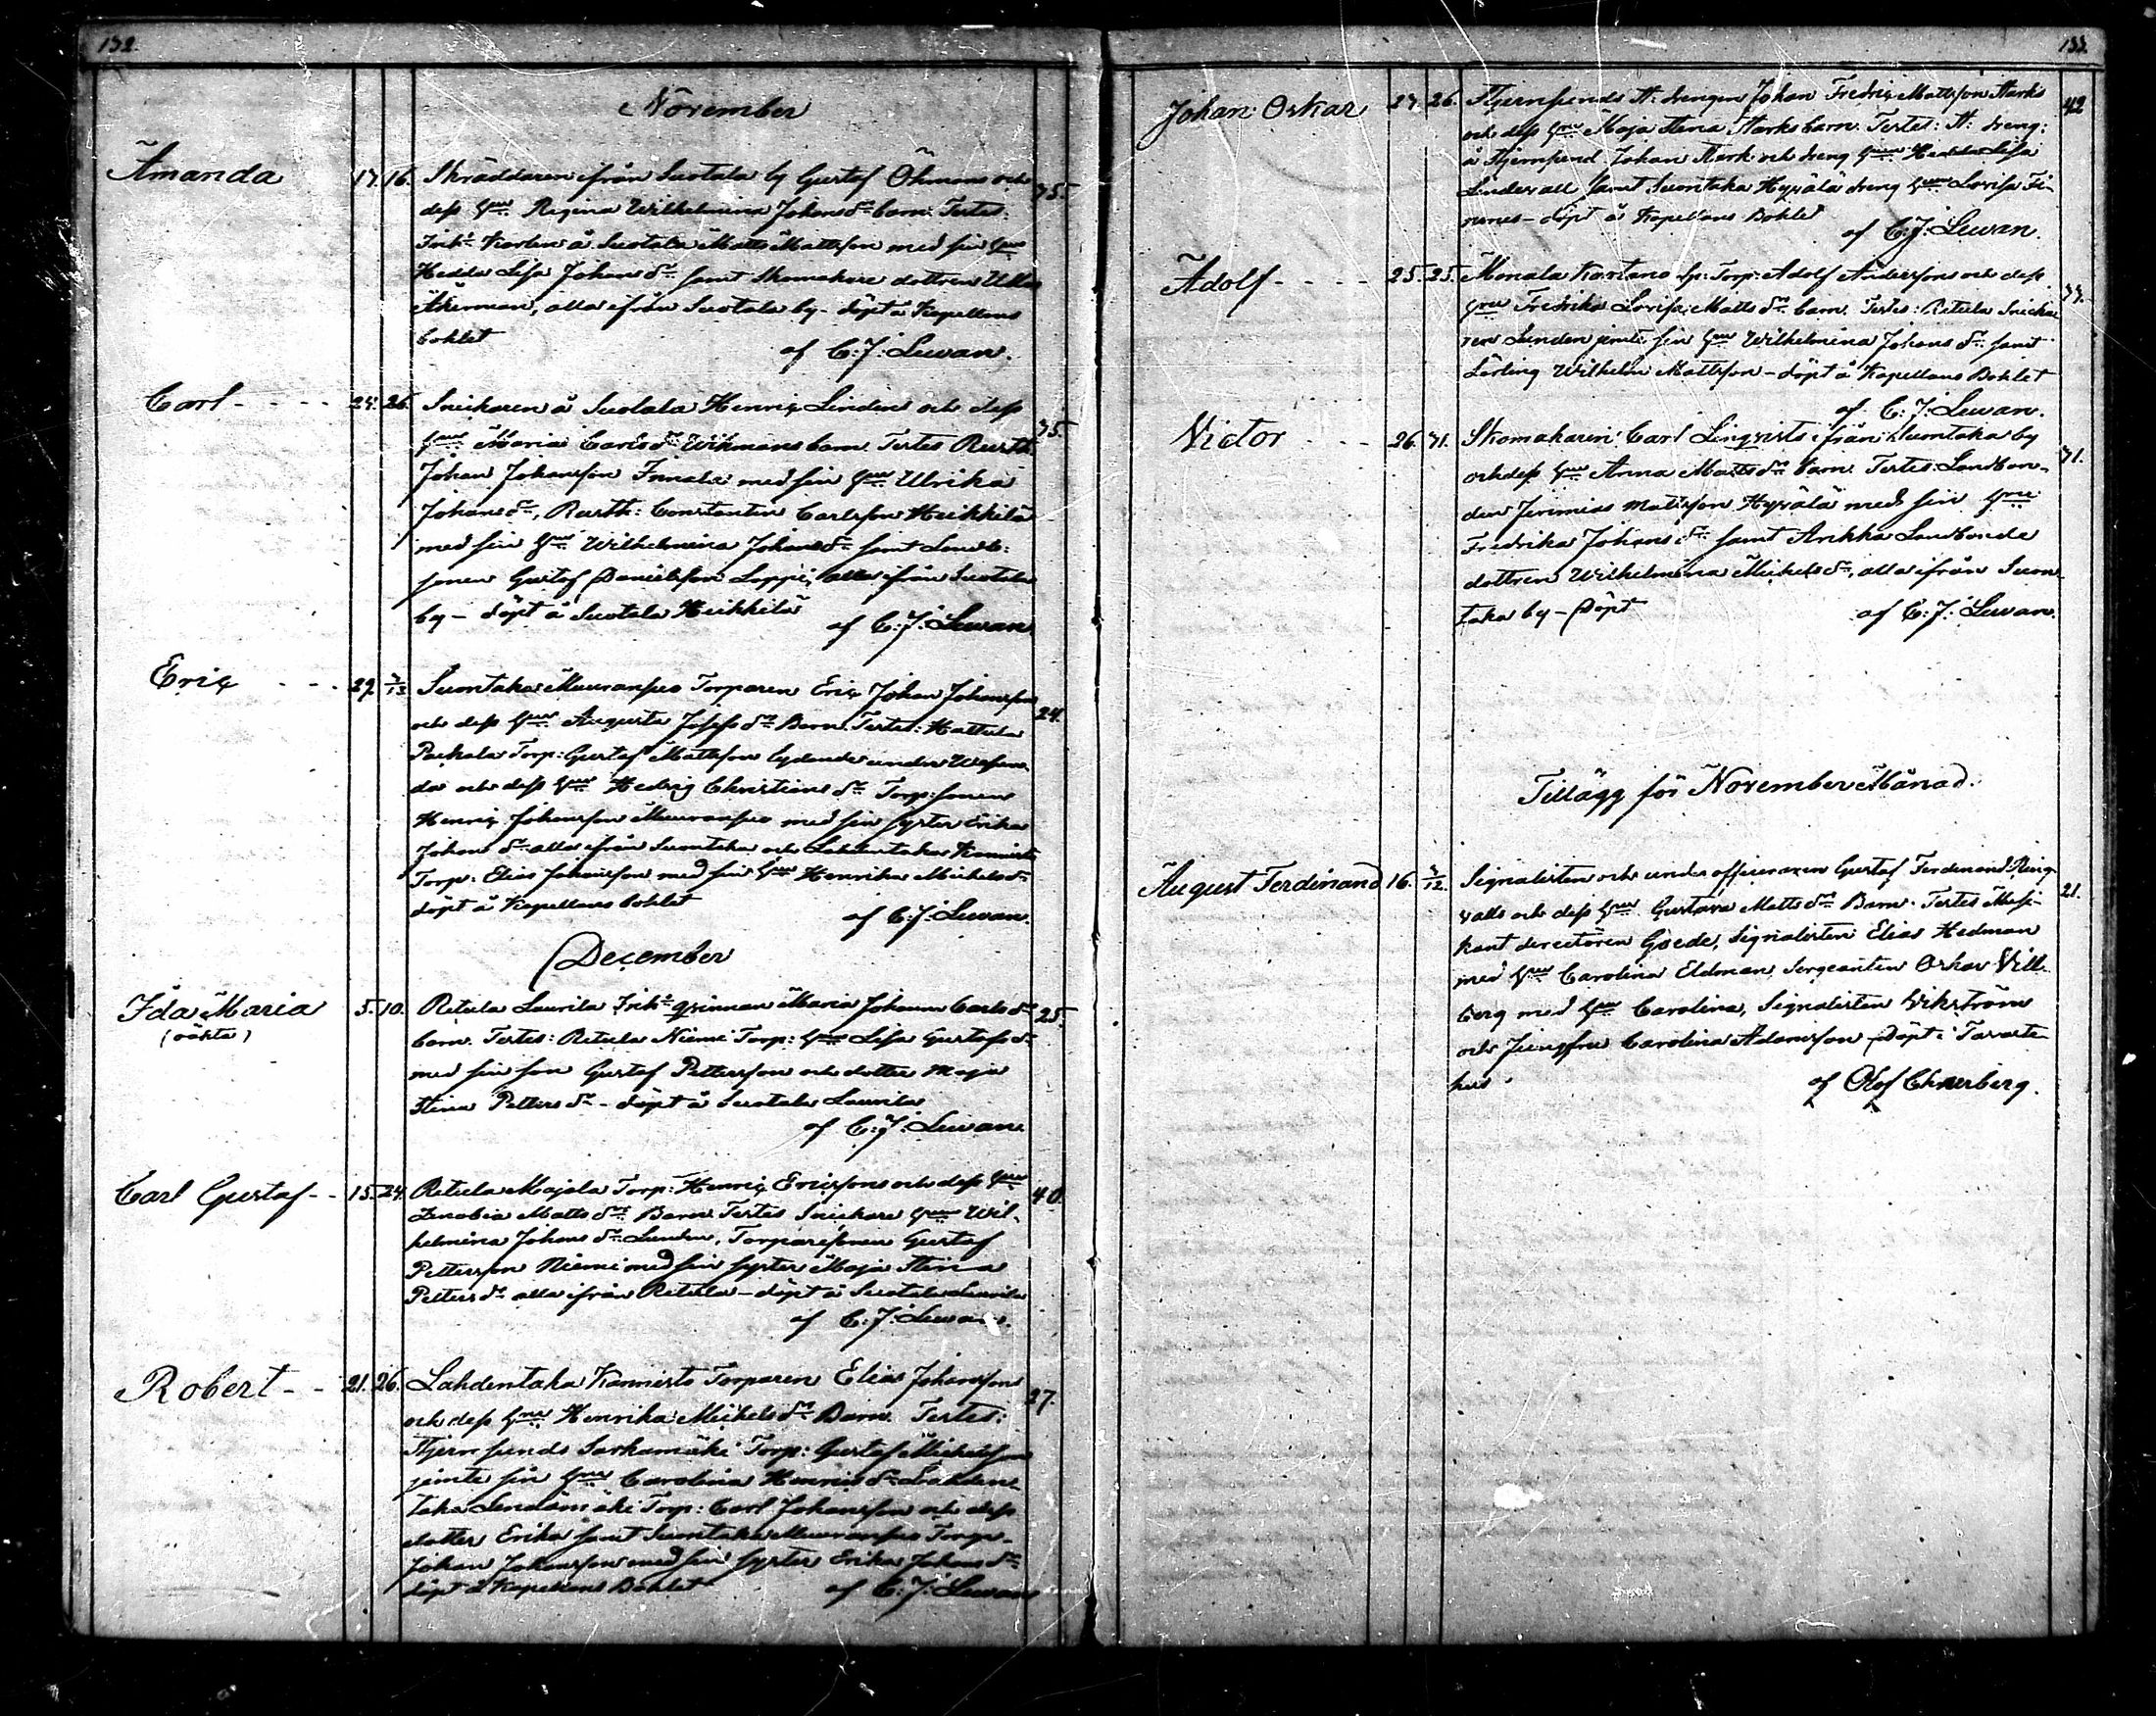 132.
November
Amanda 17. 16. Skräddaren ifrån Suotala by Gustaf Öhmans och 75.
dess Hru Regina Wilhelmina Johans dr barn. Testes:
Inhs Karlen å Suotala Matts Mattsson med sin Hru
Hedda Lisa Johans dr samt Skomakare dottren Ulla
Åkerman, alla ifrån Suotala by - döpt å Kapellans
bohlet
af C: J: Lewan.
Carl - - - - 24. 26. Snickaren å Suotala Henric Lindens och dess 75.
Hru Maria Carls dr Wikmans barn. Testes Rusth:
Johan Johansson Innala med sin Hru Ulrika
Johans dr, Rusth: Constantin Carlsson Heikkilä
med sin Hru Wilhelmina Johans dr samt Landb:
sonen Gustaf Danielsson Loppi, alla ifrån Suotala
by - döpt å Suotala Heikkilä
af C: J: Lewan
Eric - - - 29. 3/12 Suontaka Mauranpeo Torparen Eric Johan Johansson 24.
och dess Hru Augusta Josefs dr Barn. Testes: Hattula
Parkala Torp: Gustaf Mattsson lydande under
och dess Hru Hedvig Christians dr Torp: sonen
Henric Johansson Mauranpeo med sin syster Erika
Johans dr alla ifrån Suontaka och Lahdentaka Kannisto
Torp: Elias Johansson med sin Hru Henrika Michels dr
döpt å Kapellans bohlet
af C: J: Lewan.
December
Ida Maria 5. 10. Retula Laurila Inhs qvinnan Maria Johanna Carls dr 25.
(oäkta) barn. Testes: Retula Niemi Torp: Hru Lisa Gustafs dr
med sin son Gustaf Pettersson och dotter Maja
Stina Petters dr - döpt å Suotala Laurila
af C: J: Lewan
Carl Gustaf - - 15. 24. Retula Majala Torp: Henric Ericssons och dess Hru 40.
Zenobia Matts drs Barn Testes Snickare Hru Wil-
helmina Johans dr Linden, Torparesonen Gustaf
Pettersson Niemi med sin syster Maja Stina
Petters dr alla ifrån Retula - döpt å Suotala Laurila
af C: J: Lewan.
Robert - - 21. 26. Lahdentaka Kannisto Torparen Elias Johanssons 27.
och dess Hru Henrika Michels drs Barn. Testes:
Stjernsunds Sorkamäki Torp: Gustaf Michelsson
jemte sin Hru Carolina Henrics dr Lahden-
taka Torp: Carl Johansson och dess
dotter Erika samt Suontaka Mauranpeo Torp-
Johan Johansson med sin syster Erika Johans dr
döpt å Kapellans Bohlet
af C: J: Lewan
133.
Johan Oskar 24. 26. Stjernsunds St: drengen Johan Fredric Mattsson Starks 42
och dess Hru Maja Stina Starks barn. Testes: St: dreng:
å Stjernsund Johan Stark och dreng Hru Hedda Lisa
Lindvall samt Suontaka Hyvälä dreng Hru Lovisa Fi-
nenes - döpt å Kapellans Bohlet
af C: J: Lewan.
Adolf - - - - 25. 25. Monala Kartano Sp: Torp: Adolf Anderssons och dess
Hru Fredrika Lovisa Matts drs barn. Testes: Retula Snicka-
ren Linden jemte sin Hru Wilhelmina Johans dr samt
Lärling Wilhelm Mattsson - döpt å Kapellans Bohlet
af C: J: Lewan.
Victor - - - 26. 31. Skomakaren Carl Linqvists ifrån Suontaka by 71.
och dess Hru Anna Matts drs barn. Testes: Landbon-
den Jeremias Matsson Hyvälä med sin Hru
Fredrika Johans dr samt Arikka Landbonde
dottren Wilhelmina Michels dr, alla ifrån Suon-
taka by - Döpt
af C: J: Lewan.
Tillägg för November Månad.
August Ferdinand 16. 3/12. Signalisten och underofficeraren Gustaf Ferdinand Ring- 21.
valls och dess Hru Gustava Matts drs Barn. Testes Musi-
kant directören Goede, Signalisten Elias Hedman
med Hru Carolina Eldman Sergeanten Oskar Vill-
berg med Hru Carolina, Signalisten Wikström
och Jungfru Carolina Adamsson Döpt i Tavaste-
hus
af Olof Chnerberg.